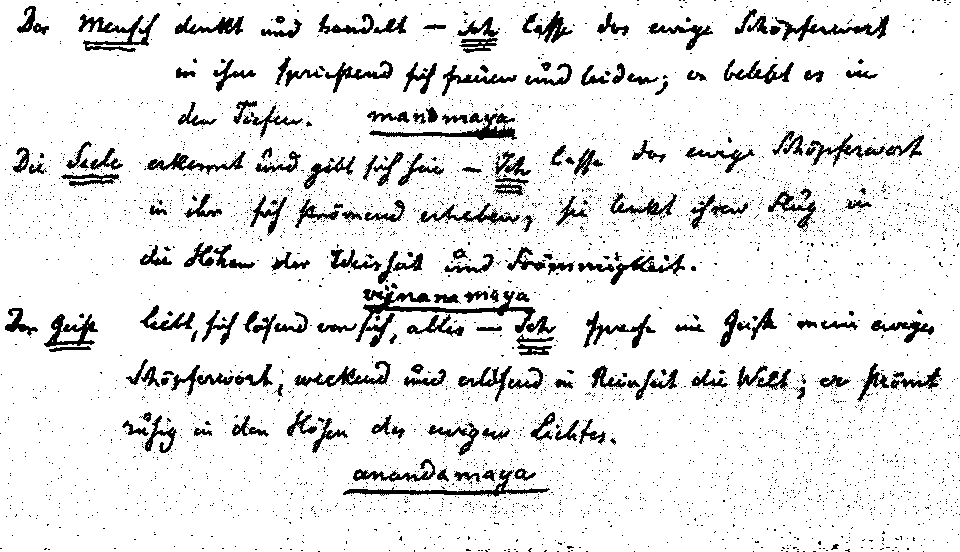 Der Mensch denkt und handelt — Ich lasse das ewige Schöpferwort
in ihm sprießend sich freuen und leiden; er belebt es in
den Tiefen. manomaya
Die Seele erkennet und gibt sich hin — Ich lasse das ewige Schöpferwort
in ihr sich strömend erheben; sie lenkt ihren Flug in
die Höhen der Weisheit und Frömmigkeit.
vijnanamaya
Der Geist liebt, sich lösend von sich, alles — Ich spreche im Geist mein ewiges
Schöpferwort, weckend und erlösend in Reinheit die Welt; er strömt
ruhig in den Höhen des ewigen Lichtes.
anandamaya